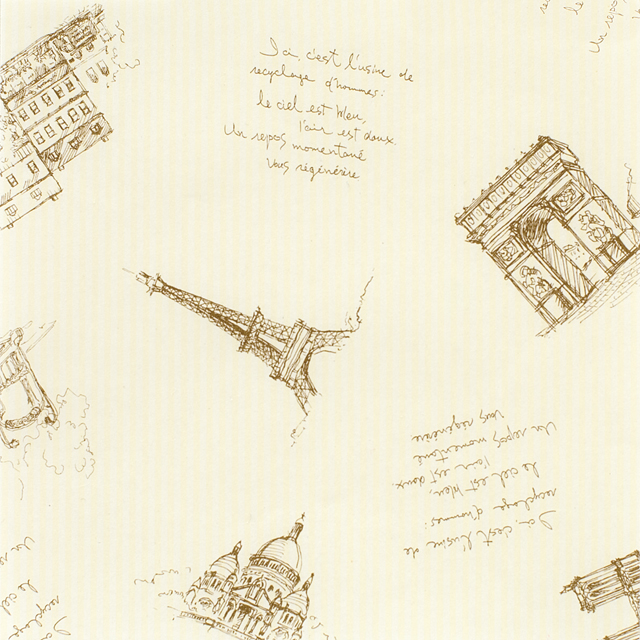 Ici, c'est l'usine de
recyclage d'hommes:
le ciel est bleu,
l'air est doux.
Un repos momentané
vous régénère
Ici, c'est l'usine de
recyclage d'hommes:
le ciel est bleu,
l'air est doux.
Un repos momentané
vous régénère